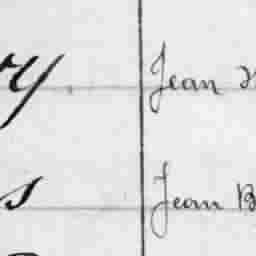 ry. Jean
s Jean B